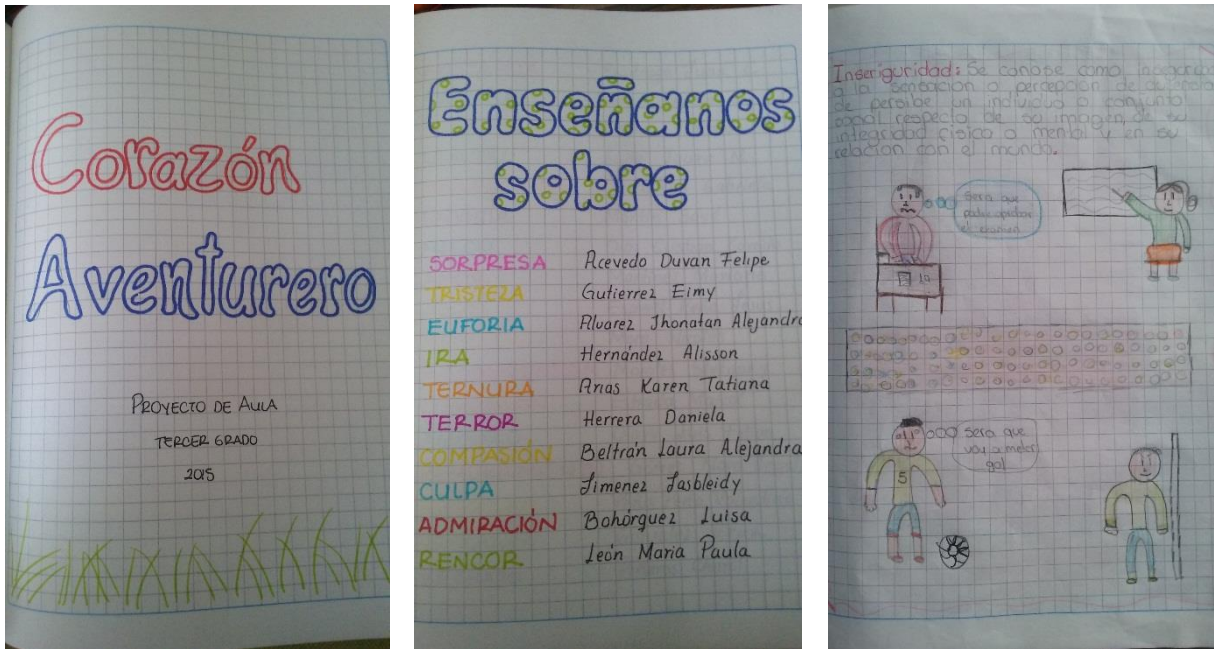 Corazón
Aventurero
PROYECTO DE AULA
TERCER GRADO
2015
Enseñanos
sobre
SORPRESA Acevedo Duvan Felipe
TRISTEZA Gutierrez Eimy
EUFORIA Alvarez Jhonatan Alejandro
IRA Hernández Alisson
TERNURA Arias Karen Tatiana
TERROR Herrera Daniela
COMPASIÓN Beltrán Laura Alejandra
CULPA Jimenez Lasbleidy
ADMIRACIÓN Bohórquez Luisa
RENCOR León Maria Paula
Inseriguridad: Se conose como
a la sensacion o percepcion de
de persibe un individuo o conjunto
respecto de su imagen, de su
integridad fisica o mental y en su
relacion con el mundo.
Sera que
podre aprobar
el examen
10
Sera que
voy a meter
gol
5